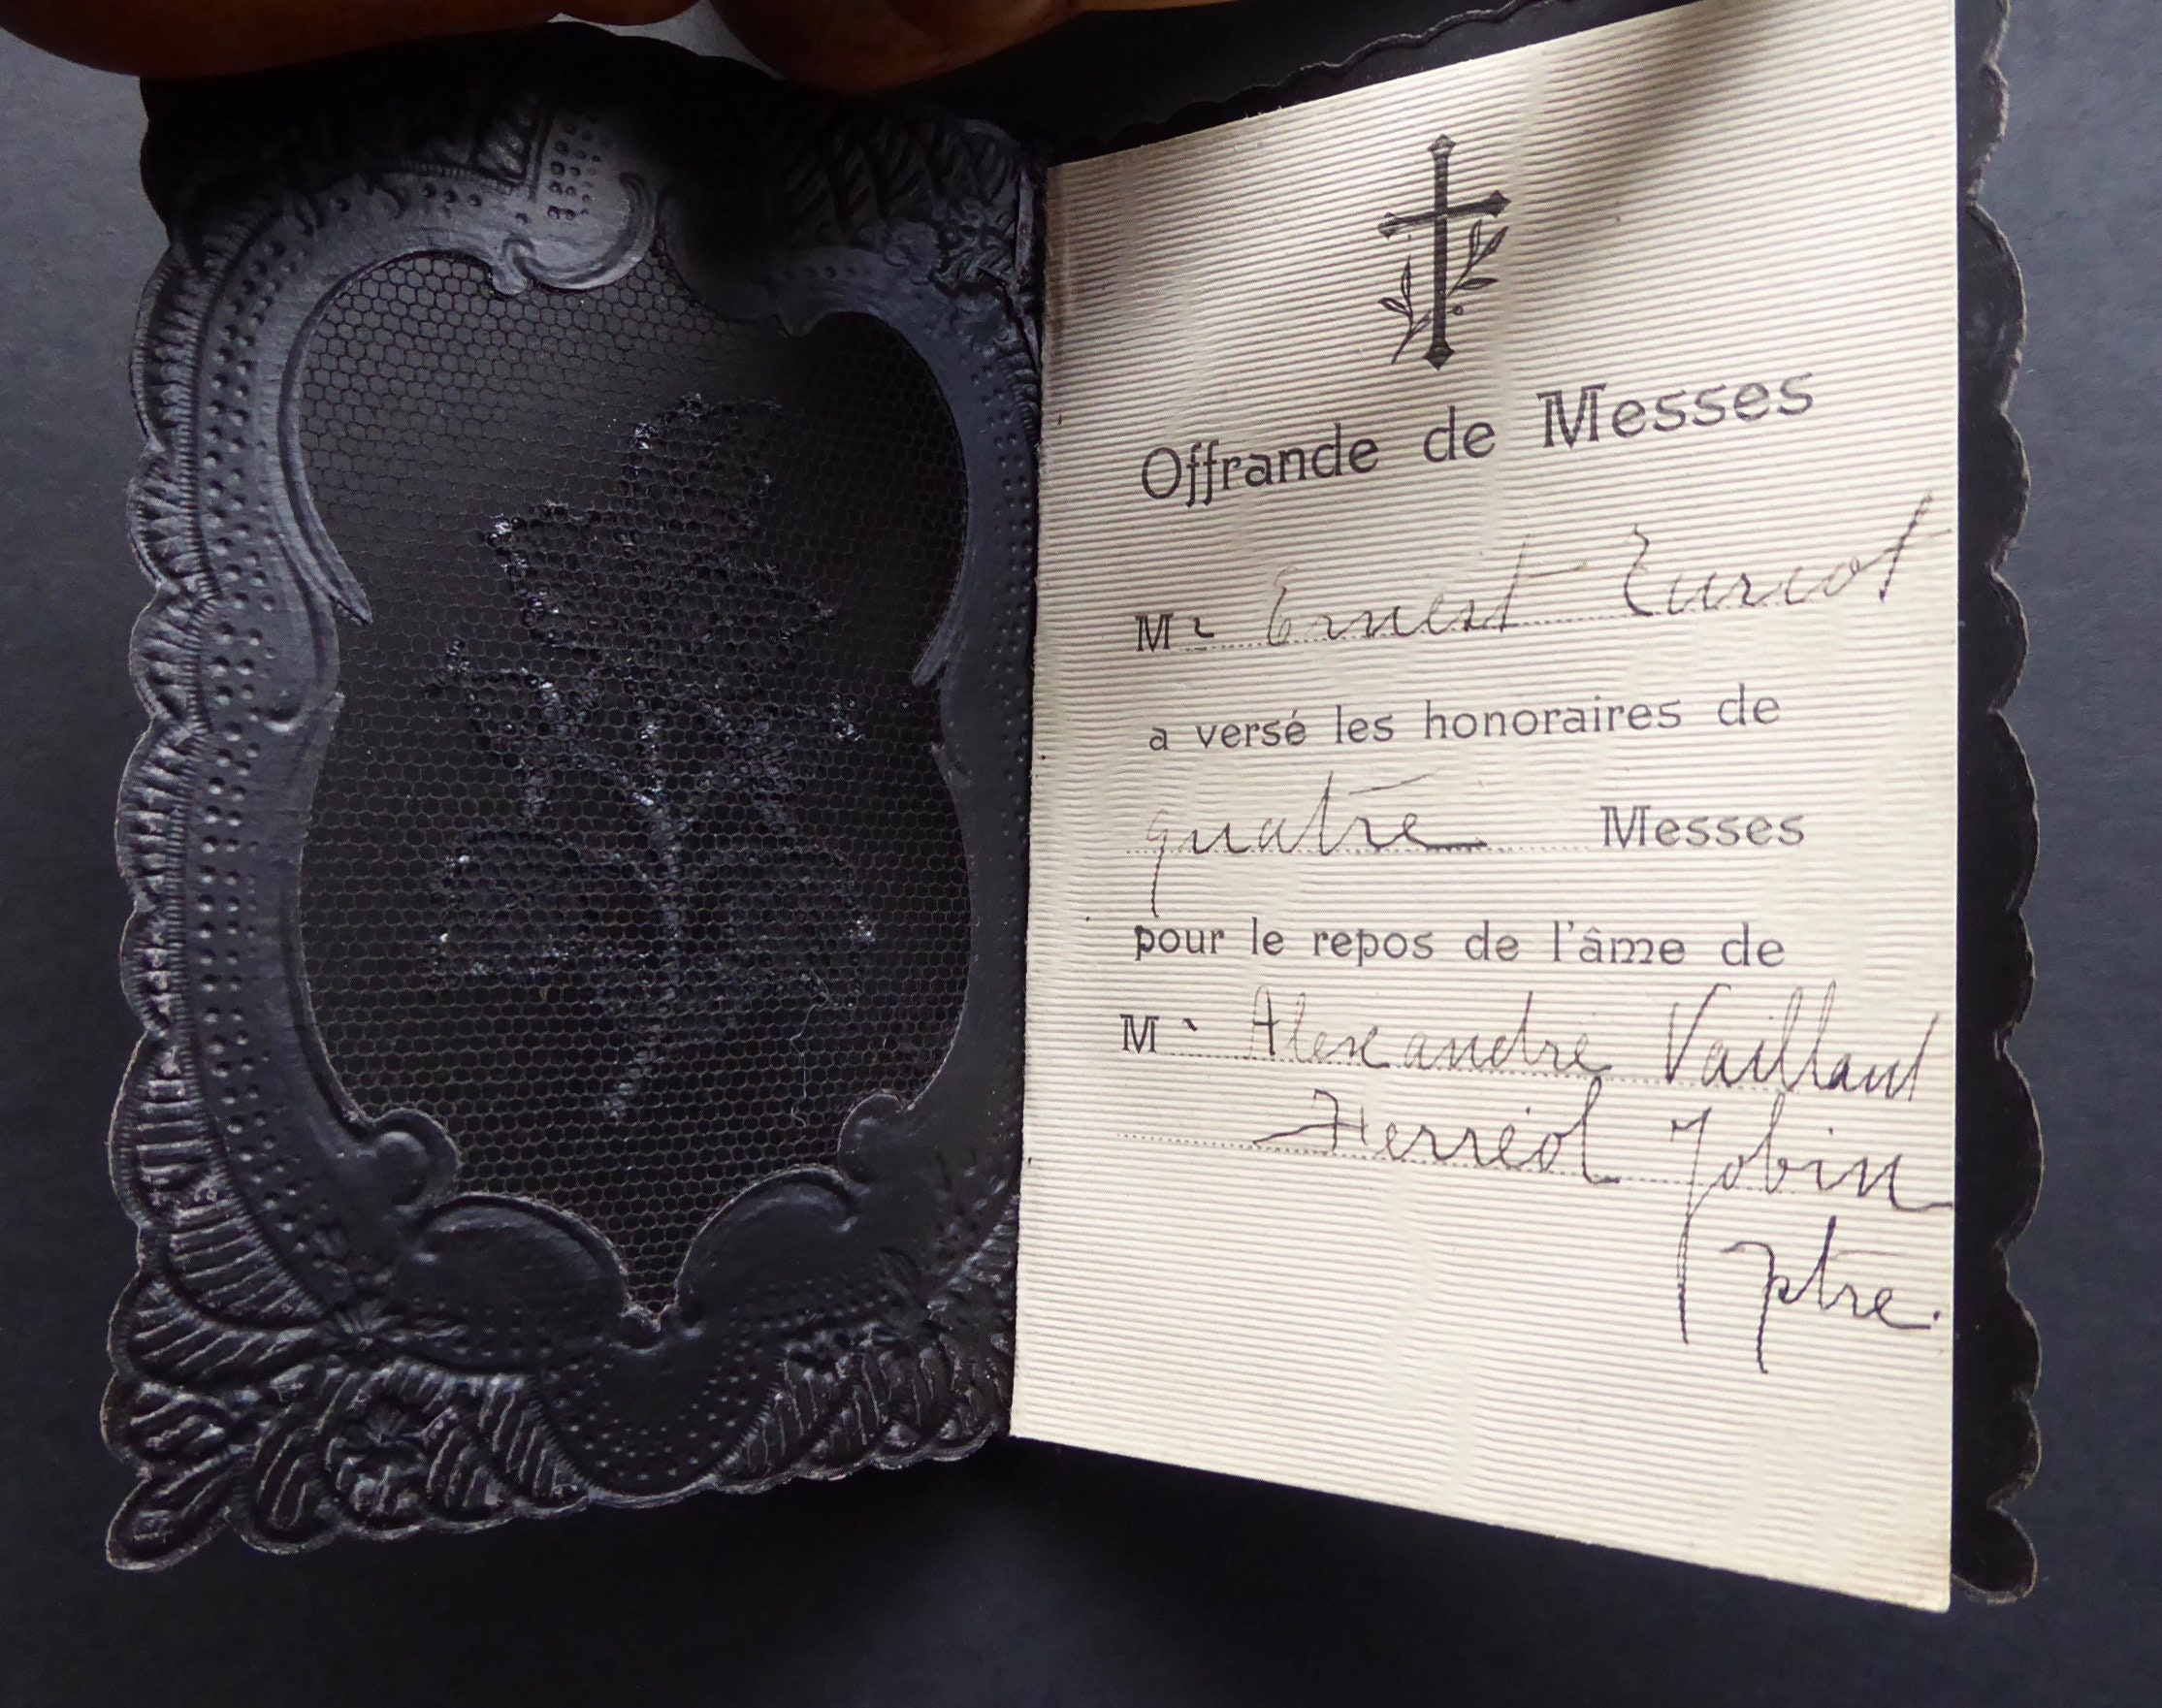 Offrande de Messes
Mr Ernest Turcot
a versé les honoraires de
quatre Messes
pour le repos de l'âme de
M. Alexandre Vaillant
Ferréol Jobin
ptre.